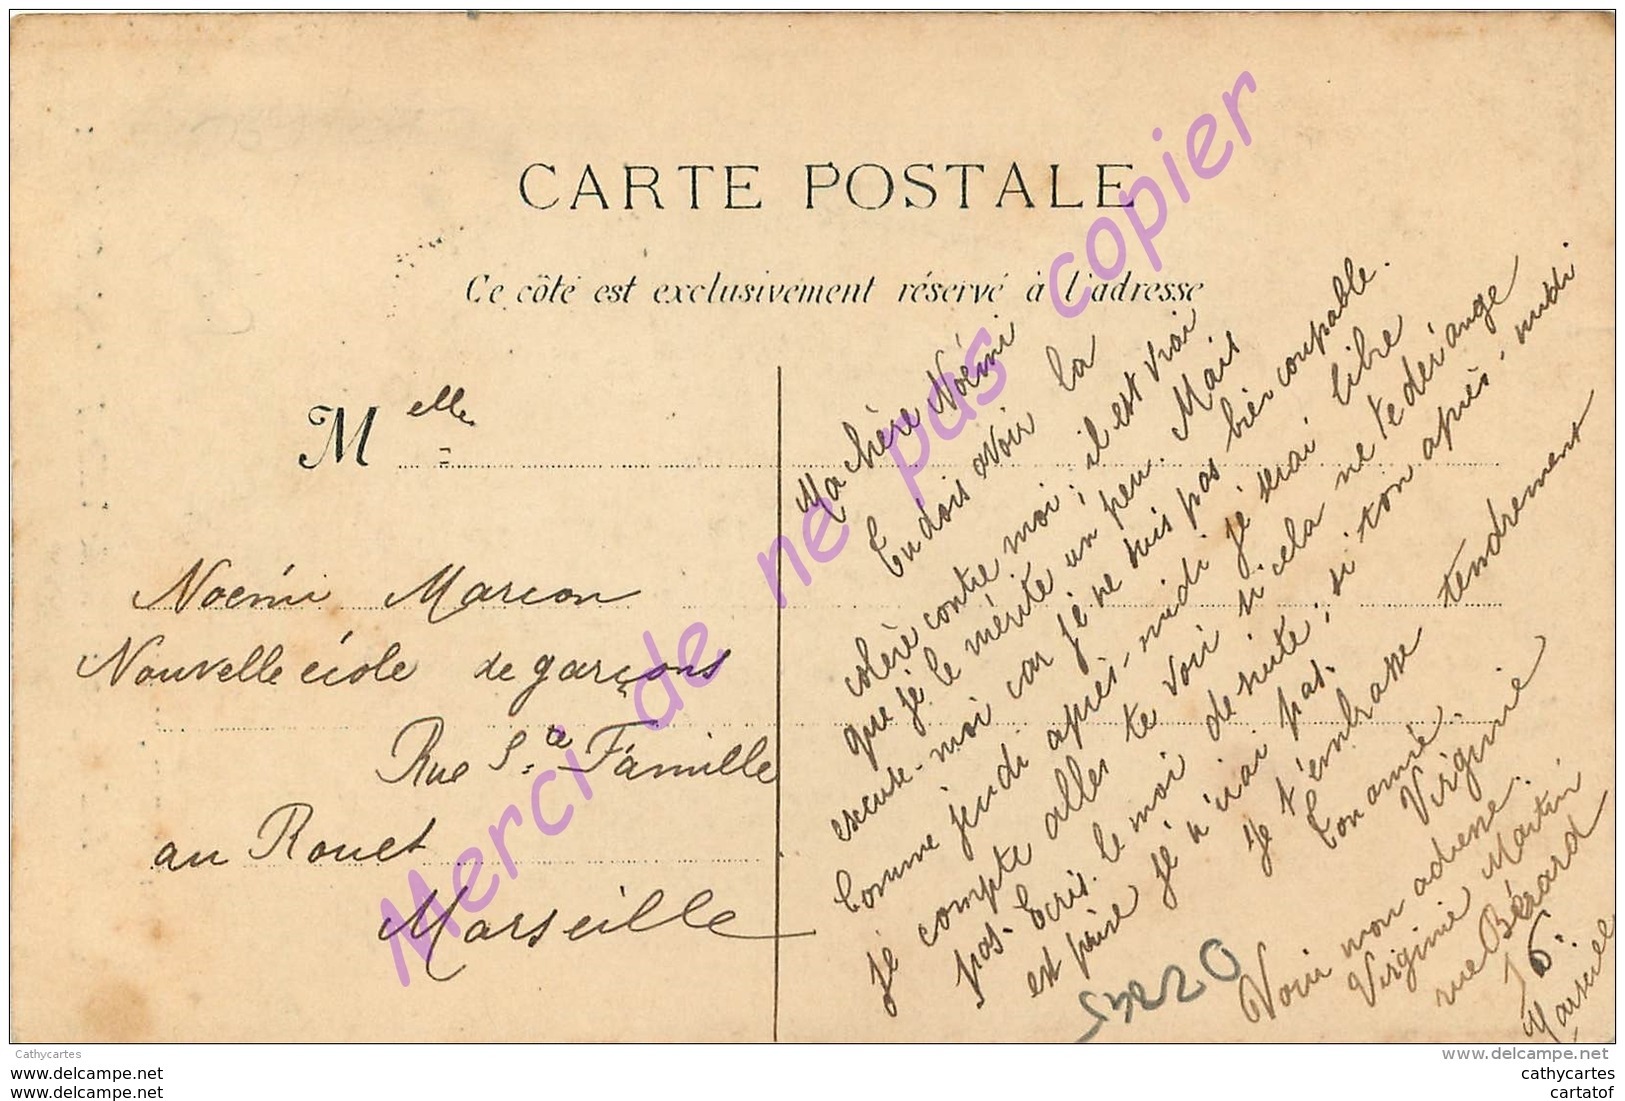 CARTE POSTALE
Ce côté est exclusivement réservé à l'adresse
Melle
Noémi Marcon
Nouvelle école de garçons
Rue Ste Famille
au Rouet
Marseille
Ma chère Noémi
Tu dois avoir la
colère contre moi ; il est vrai
que je le mérite un peu. Mais
excuse-moi car je ne suis pas bien coupable.
Comme jeudi après-midi je serai libre
je compte aller te voir si cela ne te dérange
pas. Ecris le moi de suite ; si ton après-midi
est prise je n'irai pas.
Je t'embrasse tendrement
Ton amie.
Virginie
Voici mon adresse.
Virginie Martin
rue Bérard
16.
Marseille
54220
Merci de ne pas copier
Cathycartes
www.delcampe.net
cathycartes
www.delcampe.net
www.delcampe.net
cathycartes
cartatof